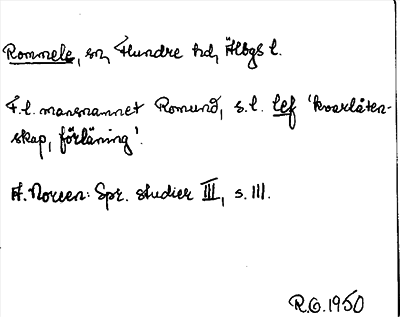 Rommele, sn, Flundre hd, Älbgs l.
F.l. mansnamnet Romund, s.l. lef 'kvarlåten-
skap, förläning'.
A. Noreen: Spr. studier III, s. 111.
R.O. 1950